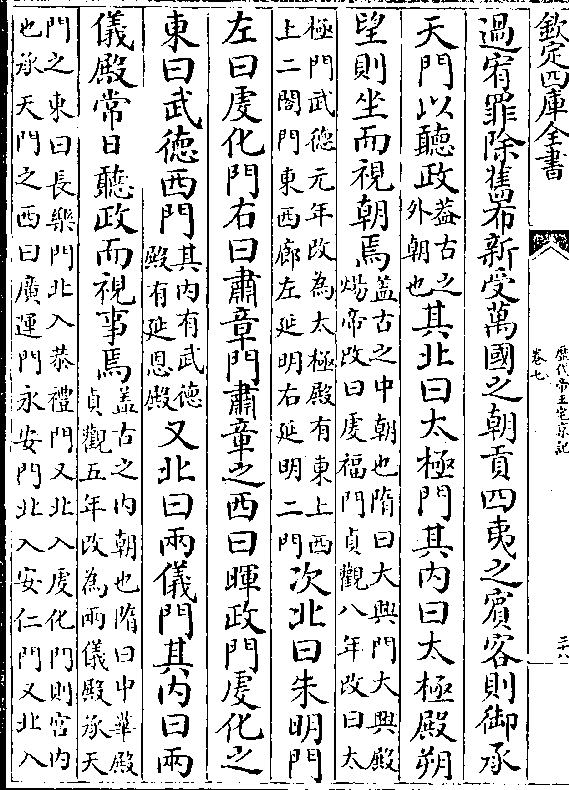 欽定四庫全書
歷代帝王宅京記
卷七
三十八
過宥罪除舊布新受萬國之朝貢四夷之賓客則御承
天門以聽政蓋古之外朝也其北曰太極門其内曰太極殿朔
望則坐而視朝焉蓋古之中朝也隋曰大興門大興殿煬帝改曰虔福門貞觀八年改曰太
極門武德元年改為太極殿有東上西上二閤門東西廊左延明右延明二門次北曰朱明門
左曰虔化門右曰肅章門肅章之西曰暉政門虔化之
東曰武德西門其内有武德殿有延恩殿又北曰兩儀門其内曰兩
儀殿常日聽政而視事焉蓋古之内朝也隋曰中華殿貞觀五年改為兩儀殿承天
門之東曰長樂門北入恭禮門又北入虔化門則宫内
也承天門之西曰廣運門永安門北入安仁門又北入